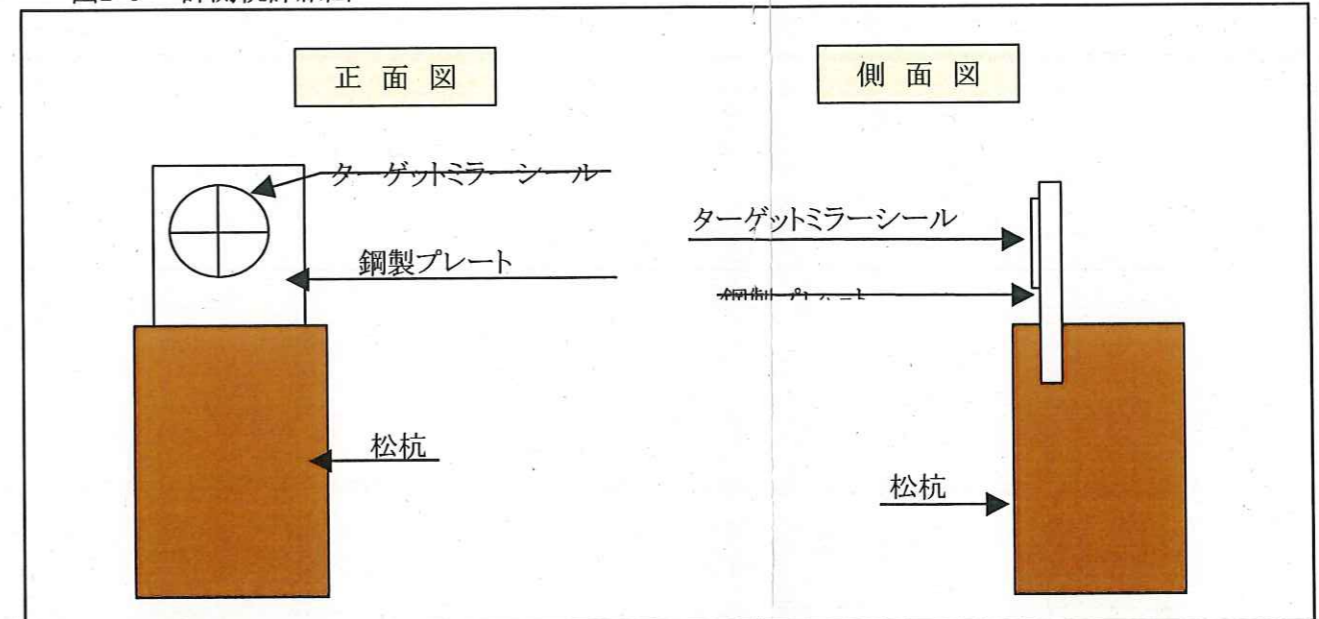 正 面 図
側 面 図
ターゲットミラーシール
鋼製プレート
松杭
ターゲットミラーシール
松杭